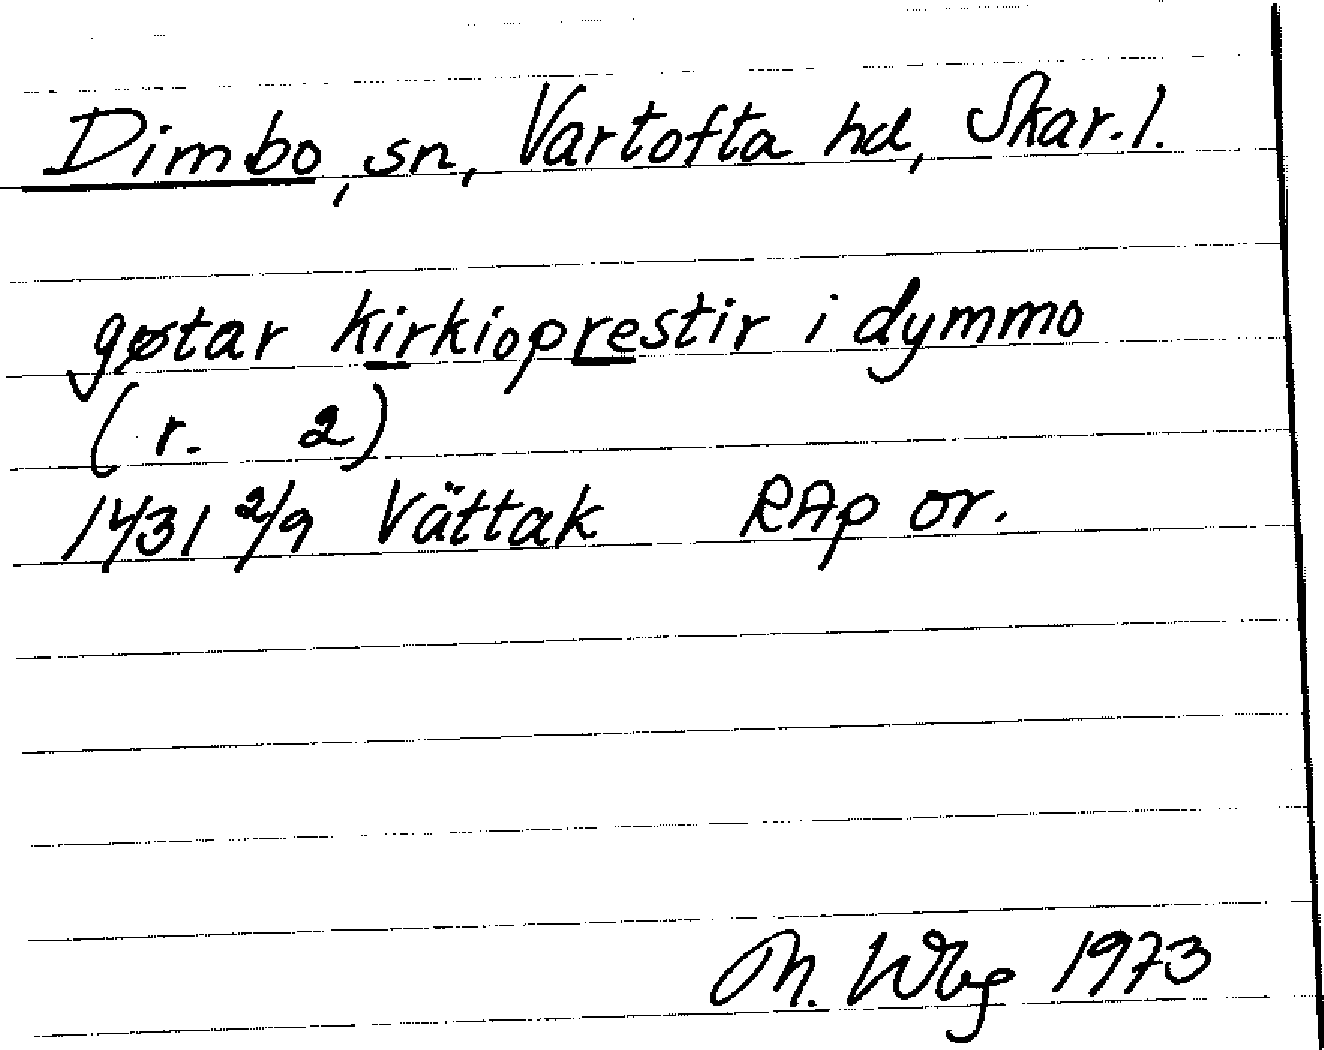 Dimbo, sn, Vartofta hd, Skar. l.
gøtar kirkioprestir i dymmo
(r. 2)
1431 2/9 Vättak RAp or.
M. Wbg 1973